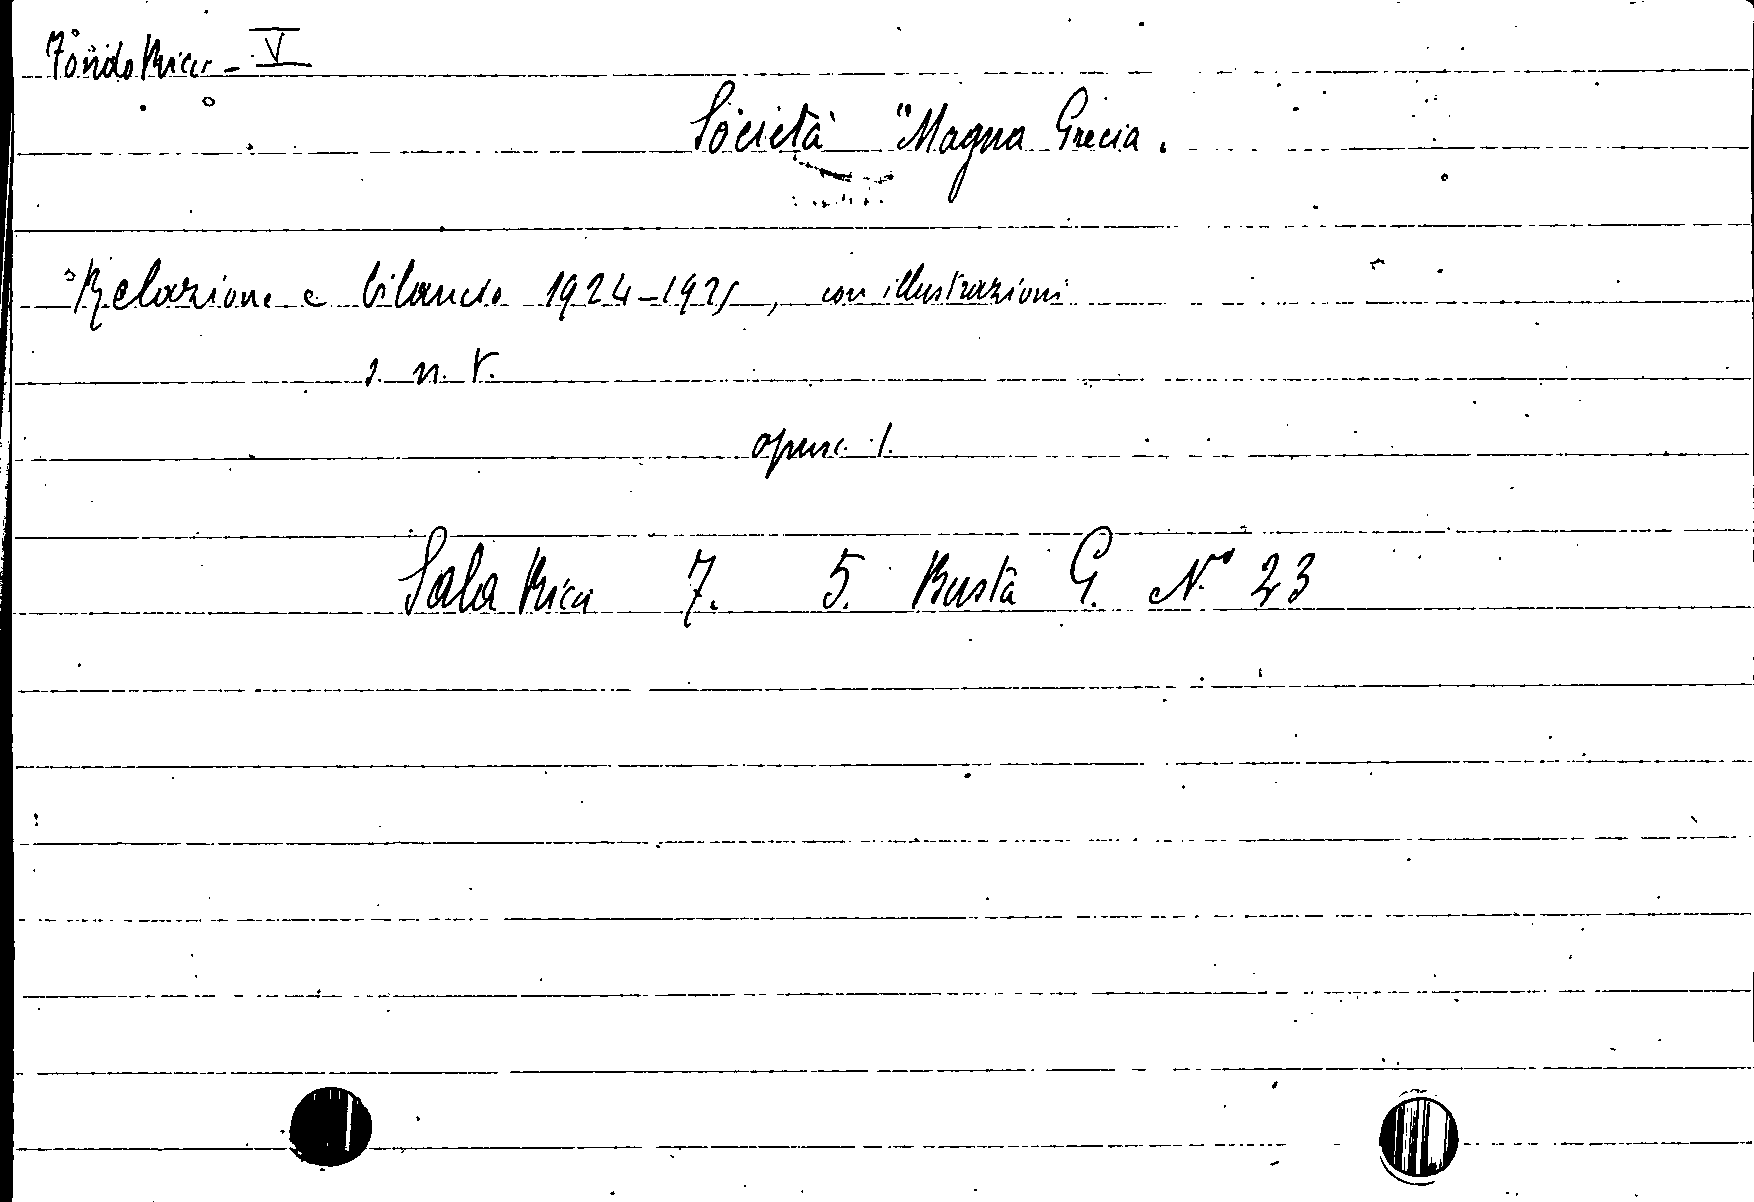 Fondo Ricci - V
Società "Magna Grecia.
Relazione e bilancio 1924-1925, con illustrazioni
s. n. t.
opusc. 1.
Sala Ricci 7. 5. Busta G. N° 23